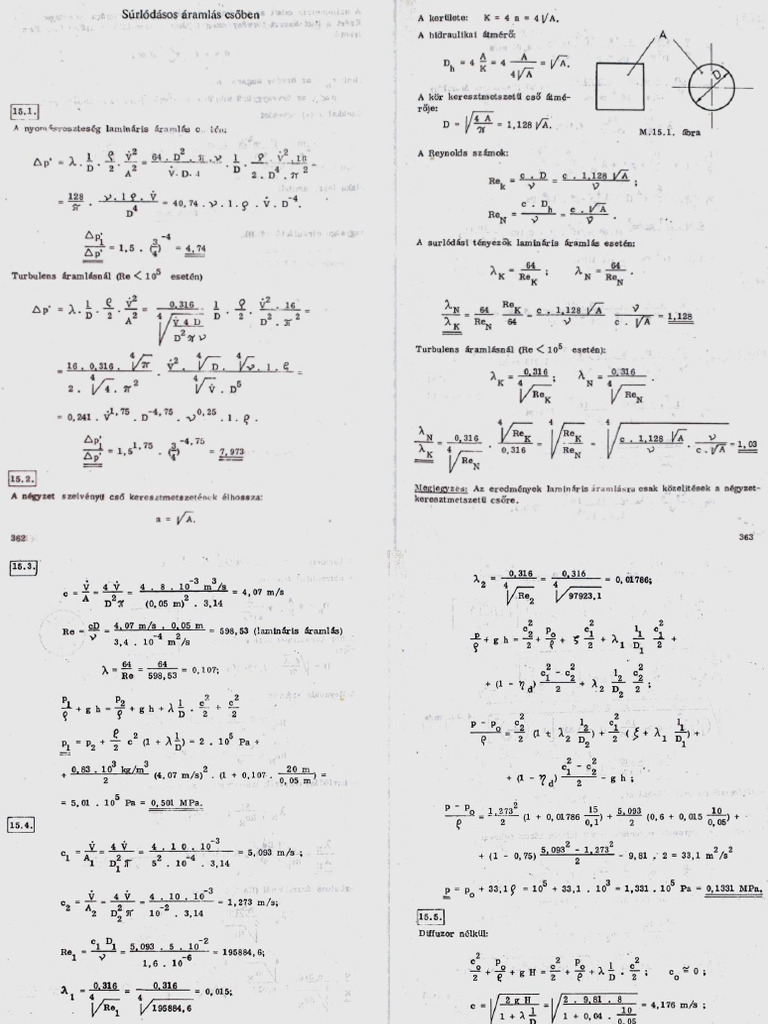 Súrlódásos áramlás csőben
15.1.
A nyomásveszteség lamináris áramlás esetén:
Δp' = λ · l/D · ρ/2 · V̇²/A² = 64 · D² · π · ν / V̇ · D · 4 · l/D · ρ · V̇² · 16 / 2 · D⁴ · π² =
= 128/π · ν · l · ρ · V̇ / D⁴ = 40,74 · ν · l · ρ · V̇ · D⁻⁴.
Δp'₁/Δp' = 1,5 · (3/4)⁻⁴ = 4,74
Turbulens áramlásnál (Re < 10⁵ esetén)
Δp' = λ · l/D · ρ/2 · V̇²/A² = 0,316 / ⁴√(V̇ 4 D / D² π ν) · l/D · ρ/2 · V̇² · 16 / D² · π² =
= 16 · 0,316 · ⁴√π / 2 · ⁴√4 · π² · V̇² · ⁴√D · ⁴√ν · l · ρ / ⁴√V̇ · D⁵ =
= 0,241 · V̇^1,75 · D^-4,75 · ν^0,25 · l · ρ .
Δp'₁/Δp' = 1,5^1,75 · (3/4)^-4,75 = 7,973
15.2.
A négyzet szelvényű cső keresztmetszetének élhossza:
a = √A.
362
A kerülete: K = 4 a = 4√A.
A hidraulikai átmérő:
D_h = 4 A/K = 4 A/4√A = √A.
A kör keresztmetszetű cső átmé-
rője:
D = √(4 A/π) = 1,128 √A.
A
D
M.15.1. ábra
A Reynolds számok:
Re_K = c · D/ν = c · 1,128 √A/ν ;
Re_N = c · D_h/ν = c · √A/ν .
A surlódási tényezők lamináris áramlás esetén:
λ_K = 64/Re_K ; λ_N = 64/Re_N .
λ_N/λ_K = 64/Re_N · Re_K/64 = c · 1,128 √A/ν · ν/c · √A = 1,128
Turbulens áramlásnál (Re < 10⁵ esetén):
λ_K = 0,316/⁴√Re_K ; λ_N = 0,316/⁴√Re_N .
λ_N/λ_K = 0,316/⁴√Re_N · ⁴√Re_K/0,316 = ⁴√(Re_K/Re_N) = ⁴√(c · 1,128 √A/ν · ν/c · √A) = 1,03
Megjegyzés: Az eredmények lamináris áramlásra csak közelítések a négyzet-
keresztmetszetű csőre.
363
15.3.
c = V̇/A = 4 V̇/D²π = 4 · 8 · 10⁻³ m³/s / (0,05 m)² · 3,14 = 4,07 m/s
Re = cD/ν = 4,07 m/s · 0,05 m / 3,4 · 10⁻⁴ m²/s = 598,53 (lamináris áramlás)
λ = 64/Re = 64/598,53 = 0,107;
p₁/ρ + g h = p₂/ρ + g h + λ l/D · c²/2 + c²/2
p₁ = p₂ + ρ/2 c² (1 + λ l/D) = 2 · 10⁵ Pa +
+ 0,83 · 10³ kg/m³ / 2 (4,07 m/s)² · (1 + 0,107 · 20 m/0,05 m) =
= 5,01 · 10⁵ Pa = 0,501 MPa.
15.4.
c₁ = V̇/A₁ = 4 V̇/D₁²π = 4 · 10 · 10⁻³ / 5² · 10⁻⁴ · 3,14 = 5,093 m/s ;
c₂ = V̇/A₂ = 4 V̇/D₂²π = 4 · 10 · 10⁻³ / 10⁻² · 3,14 = 1,273 m/s;
Re₁ = c₁ D₁/ν = 5,093 · 5 · 10⁻² / 1,6 · 10⁻⁶ = 195884,6;
λ₁ = 0,316/⁴√Re₁ = 0,316/⁴√195884,6 = 0,015;
λ₂ = 0,316/⁴√Re₂ = 0,316/⁴√97923,1 = 0,01786;
p/ρ + g h = c₂²/2 + p₀/ρ + ξ c₁²/2 + λ₁ l₁/D₁ c₁²/2 +
+ (1 - η_d) c₁² - c₂²/2 + λ₂ l₂/D₂ c₂²/2 ;
p - p₀/ρ = c₂²/2 (1 + λ₂ l₂/D₂) + c₁²/2 (ξ + λ₁ l₁/D₁) +
+ (1 - η_d) c₁² - c₂²/2 - g h ;
p - p₀/ρ = 1,273²/2 (1 + 0,01786 15/0,1) + 5,093/2 (0,6 + 0,015 10/0,05) +
+ (1 - 0,75) 5,093² - 1,273²/2 - 9,81 · 2 = 33,1 m²/s²
p = p₀ + 33,1 ρ = 10⁵ + 33,1 · 10³ = 1,331 · 10⁵ Pa = 0,1331 MPa,
15.5.
Diffuzor nélkül:
c₀²/2 + p₀/ρ + g H = c²/2 + p₀/ρ + λ l/D · c²/2 ; c₀ ≅ 0 ;
c = √(2 g H / 1 + λ l/D) = √(2 · 9,81 · 8 / 1 + 0,04 · 10/0,05) = 4,176 m/s ;